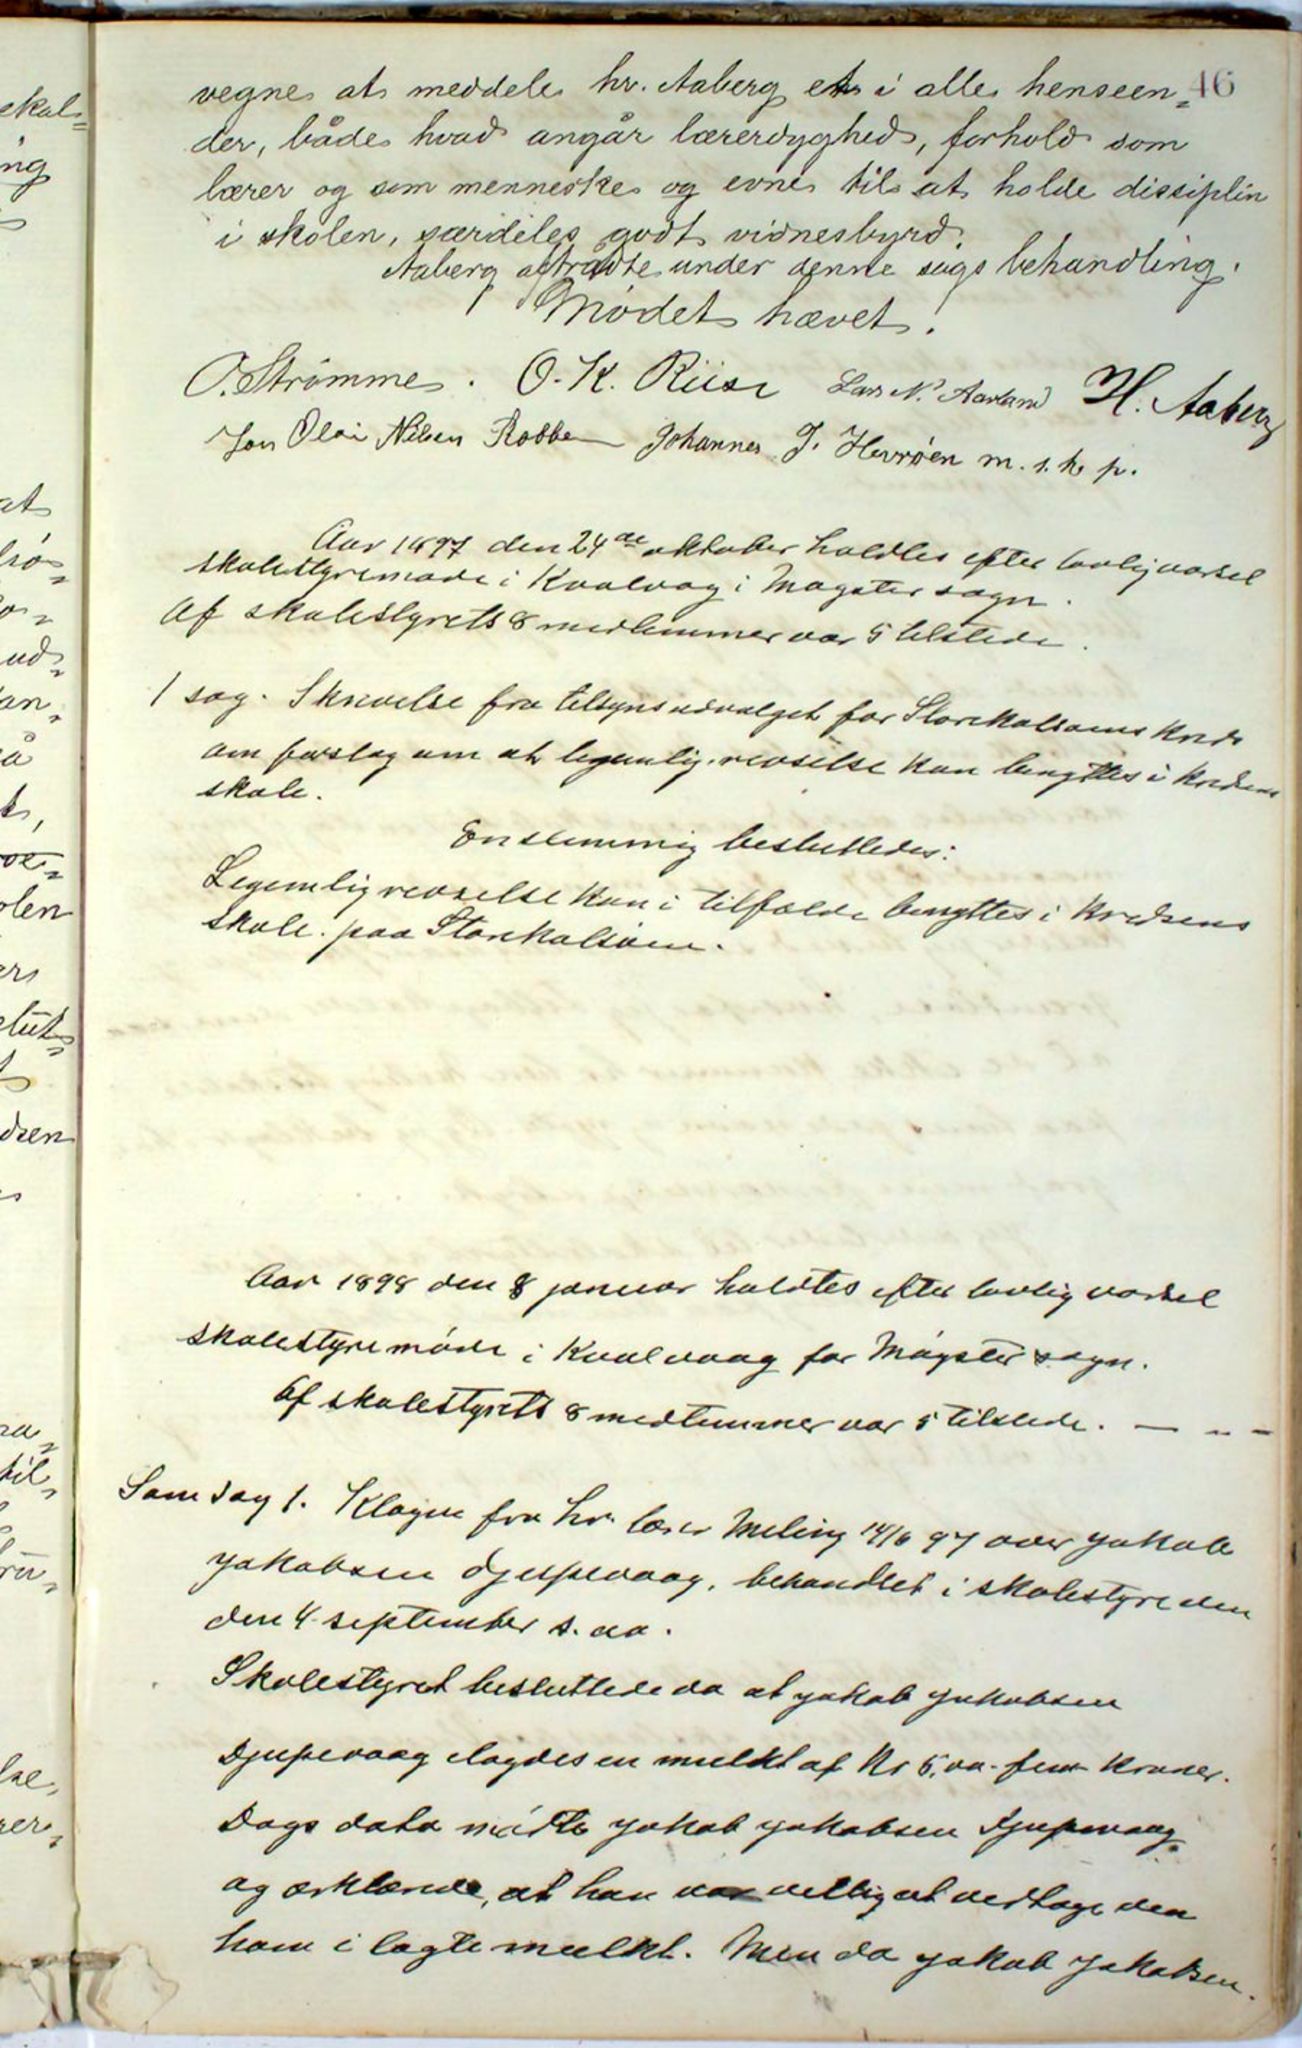 46
vegne at meddele hr. Aaberg et i alle henseen-
der, både hvad angår lærerdyghed, forhold som
lærer og som menneske og evne til at holde dissiplin
i skolen, særdeles godt vidnesbyrd.
Aaberg aftrådte under denne sags behandling.
Mødet hævet.
O. Strømme. O. K. Riise Lars N. Aarland H. Aaberg
Jon Olai Nilsen Rabben Johannes J. Hevrøen m. s. h. p.
Aar 1897 den 24de oktober holdtes efter lovlig varsel
skolestyremøde i Kvalvaag i Møgster sogn.
Af skolestyrets 8 medlemmer var 5 tilstede.
1 sag. Skrivelse fra tilsynsudvalget for Storekalsøens Kreds
om forslag om at legemlig revselse kan benyttes i Kredsens
skole.
Enstemmig besluttedes:
Legemlig revselse kan i tilfælde benyttes i Kredsens
skole paa Storekalsøen.
Aar 1898 den 8 januar holdtes efter lovlig varsel
skolestyremøde i Kvalvaag for Møgster sogn.
Af skolestyrets 8 medlemmer var 5 tilstede.
Som sag 1. Klagen fra hr. lærer Meling 14/6 97 over Jakob
Jakobsen Djupevaag, behandlet i skolestyre den
den 4 september s. aa.
Skolestyret besluttede da at Jakob Jakobsen
Djupevaag ilagdes en mulkt af Kr 5,00 - fem Kroner.
Dags dato mødte Jakob Jakobsen Djupevaag
og erklærede, at han var villig at vedtage den
ham ilagte mulkt. Men da Jakob Jakobsen.